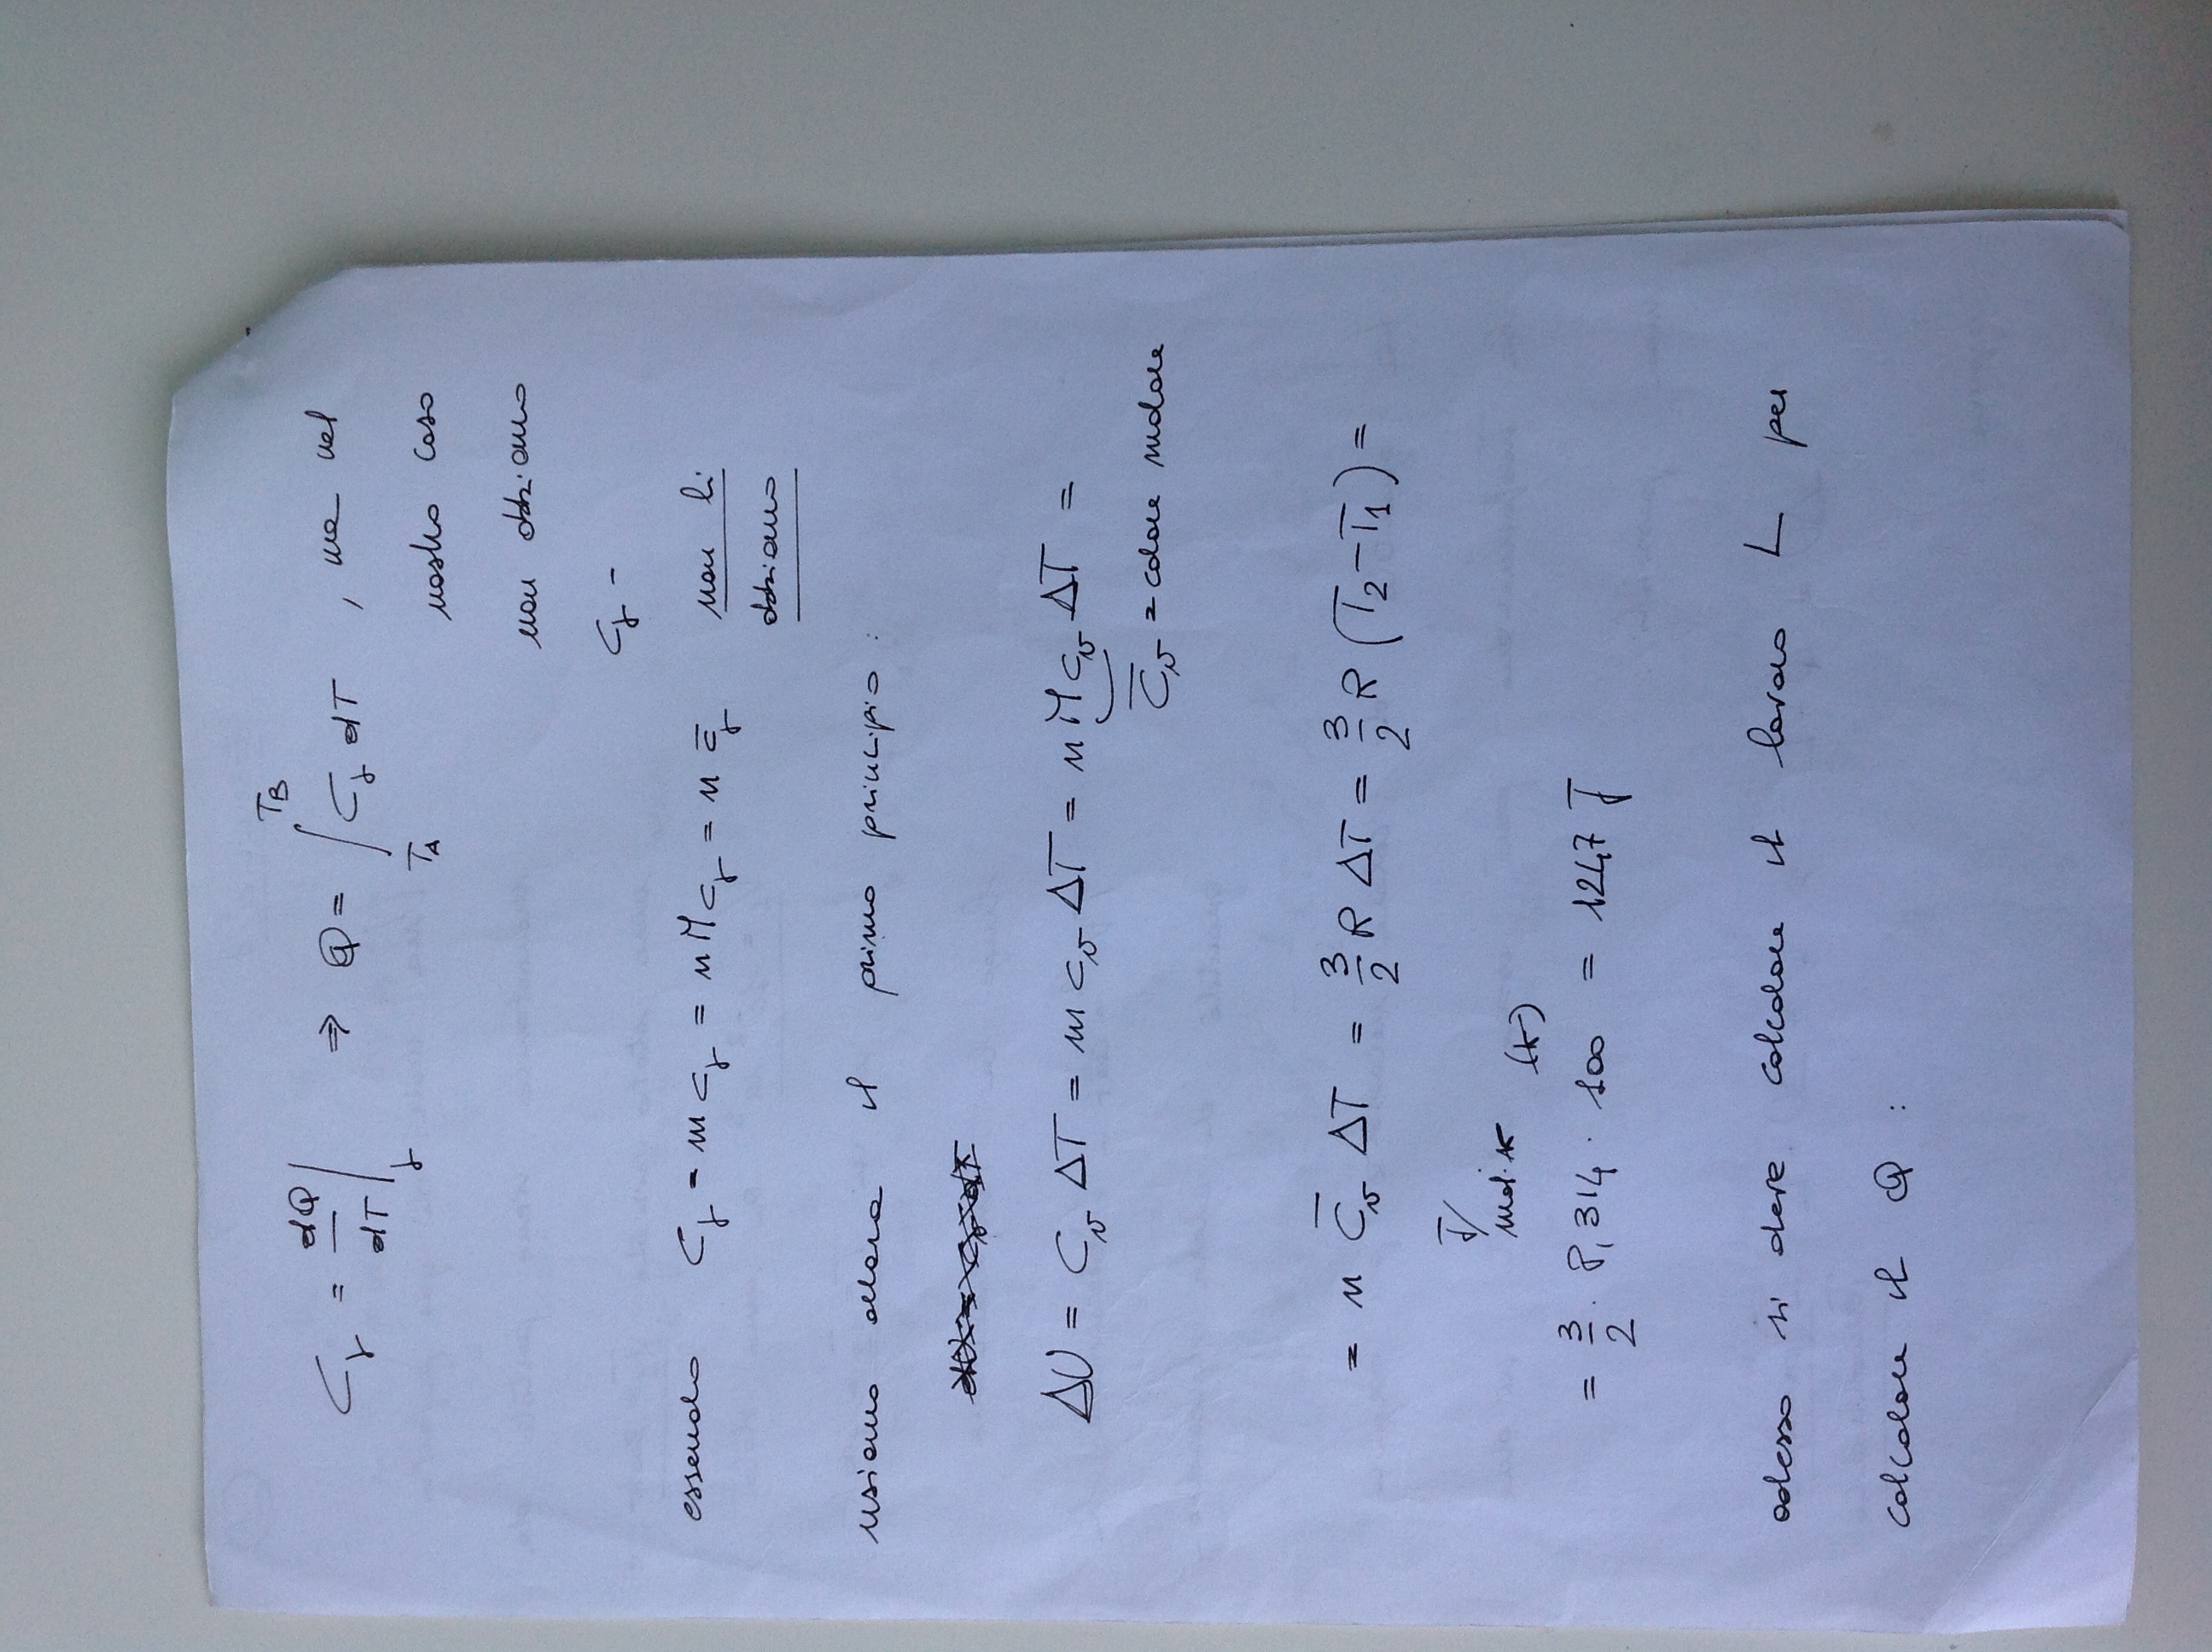 C_γ = dQ/dT |_γ ⇒ Q = ∫_{T_A}^{T_B} C_γ dT , ma nel
nostro caso
non abbiamo
C_γ -
essendo C_γ = m c_γ = n M c_γ = n c̄_γ non li
abbiamo
usiamo allora il primo principio :
dU = c_v dT
ΔU = C_v ΔT = m c_v ΔT = n M c_v ΔT =
C̄_v = calore molare
= n C̄_v ΔT = 3/2 R ΔT = 3/2 R (T_2 - T_1) =
J/
mol·K (K)
= 3/2 · 8,314 · 100 = 1247 J
adesso si deve calcolare il lavoro L per
calcolare il Q :